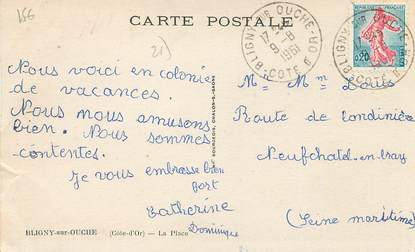 156
CARTE POSTALE
21)
BLIGNY-SUR-OUCHE
17-
9-8
1961
COTE D'OR
BLIGNY-SUR-OUCHE
COTE D'OR
0,20
Nous voici en colonie
de vacances.
Nous nous amusons
bien. Nous sommes
contentes.
Je vous embrasse bien
fort
Catherine
Dominique
M= Mm Louis
Route de londinière
Neufchatel-en-bray
(Seine maritime)
BLIGNY-sur-OUCHE (Côte-d'Or) — La Place